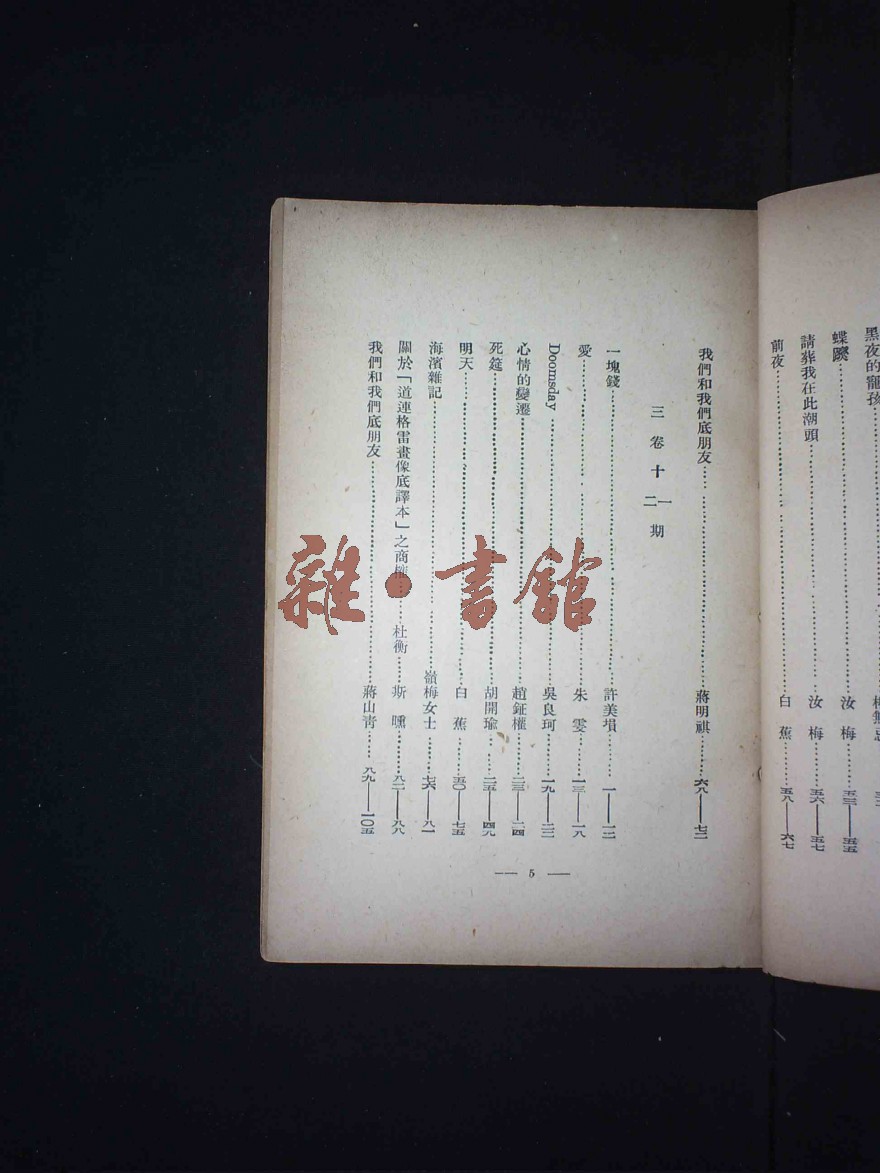 黑夜的寵孩
蝶躞……汝梅……五三——五五
請葬我在此潮頭……汝梅……五六——五七
前夜……白蕉……五八——六七
我們和我們底朋友……蔣明祺……六八——七二
三卷十一二期
一塊錢……許美塤……一——一二
愛……朱雯……一三——一八
Doomsday……吳良珂……一九——二二
心情的變遷……趙鉦權……二三——二四
死筵……胡開瑜……二五——四九
明天……白蕉……五〇——七五
海濱雜記……嶺梅女士……七六——八一
關於「道連格雷畫像底譯本」之商榷……杜衡……斯曛……八二——八八
我們和我們底朋友……蔣山青……八九——一〇五
— 5 —
雜·書館